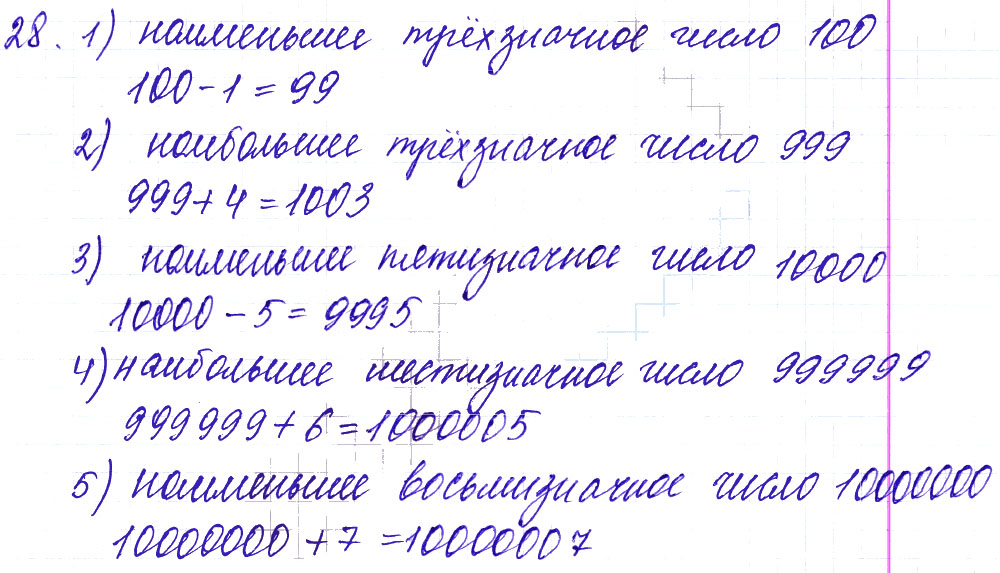 28. 1) наименьшее трёхзначное число 100
100 - 1 = 99
2) наибольшее трёхзначное число 999
999 + 4 = 1003
3) наименьшее пятизначное число 10000
10000 - 5 = 9995
4) наибольшее шестизначное число 999999
999999 + 6 = 1000005
5) наименьшее восьмизначное число 10000000
10000000 + 7 = 10000007